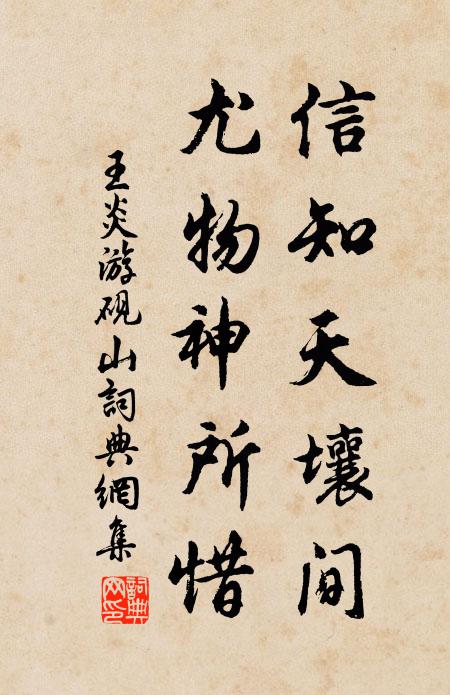 信知天壤間
尤物神所惜
王炎游硯山詞典網集
詞典網印